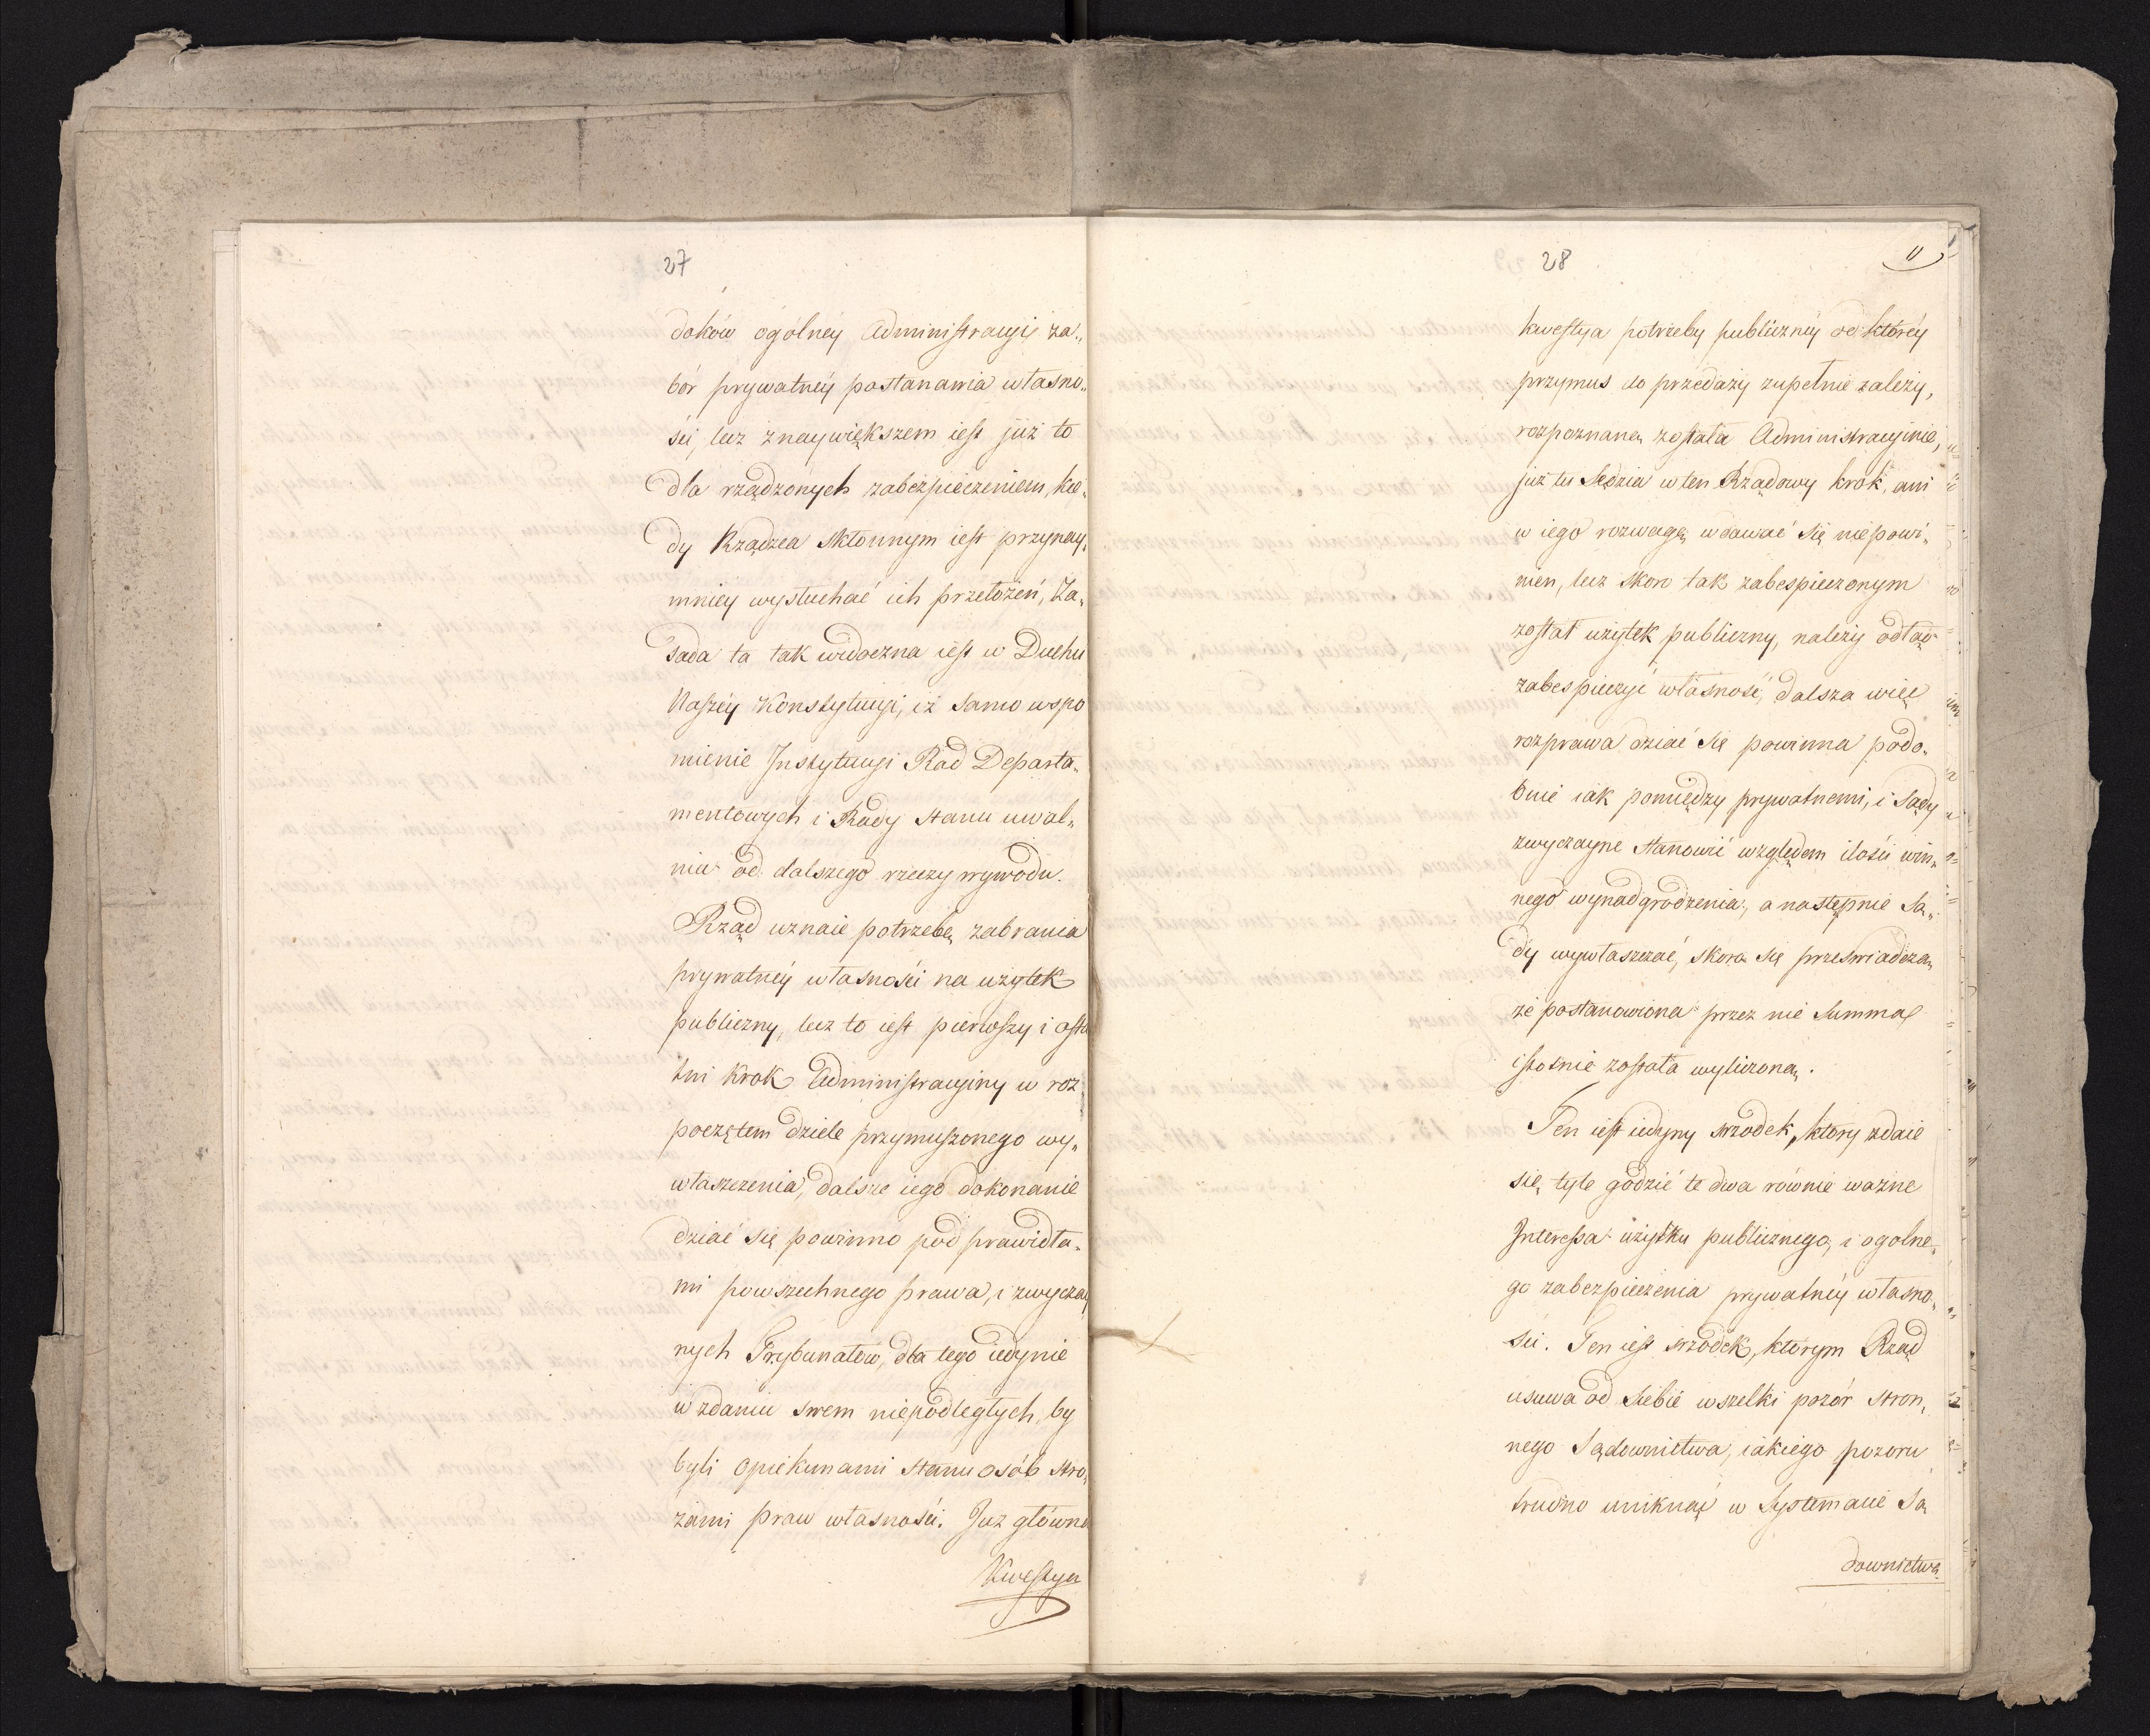 27
doków ogólnéy Administracyi za„
bór prywatnéy postanawia własno„
śći, lecz znaywiększem iest już to
dla rządzonych zabezpieczeniem, kie„
dy Rządzca skłonnym iest przynay„
mniey wysłuchać ich przełożeń, Za„
sada ta tak widoczna iest w Duchu
Naszéy Konstytucyi, iż samo wspo
mienie Instytucyi Rad Departa„
mentowych i Rady Stanu uwal„
nia od dalszego rzeczy wywodu.
Rząd uznaie potrzebę zabrania
prywatnéy własnośći na użytek
publiczny, lecz to iest pierwszy i osta
tni krok Administracyiny w roz„
poczętem dziele przymuszonego wy„
właszczenia, dalsze iego dokonanie
dziać się powinno pod prawidła„
mi powszechnego prawa, i zwyczay
nych Trybunałów, dla tego iedynie
w zdaniu swem niepodległych, by
byli opiekunami stanu osób stro„
żami praw własnośći. Już główna
Kwestya
28
11
kwestya potrzeby publicznéy od któréy
przymus do przedaży zupełnie zależy,
rozpoznaną została Administracyinie,
już tu Sędzia w ten Rządowy krok, ani
w iego rozwagę wdawać się niepowi„
nien, lecz skoro tak zabespieczonym
został użytek publiczny, należy odtąd
zabespieczyć własność, dalsza więc
rozprawa dziać się powinna podo„
bnie iak pomiędzy prywatnemi, i Sądy
zwyczayne stanowić względem ilośći win„
nego wynadgrodzenia, a następnie Są„
dy wywłaszczać, skoro się przeswiadczą
że postanowiona przez nie Summa
istotnie została wyliczoną.
Ten iest iedyny srzodek, który zdaie
się tyle godzić te dwa równie ważne
Interessa użytku publicznego, i ogolne„
go zabezpieczenia prywatnéy własno„
śći. Ten iest srzodek, którym Rząd
usuwa od siebie wszelki pozór stron„
nego Sądownictwa, iakiego pozoru
trudno uniknąć w Systemacie Są
downictwa